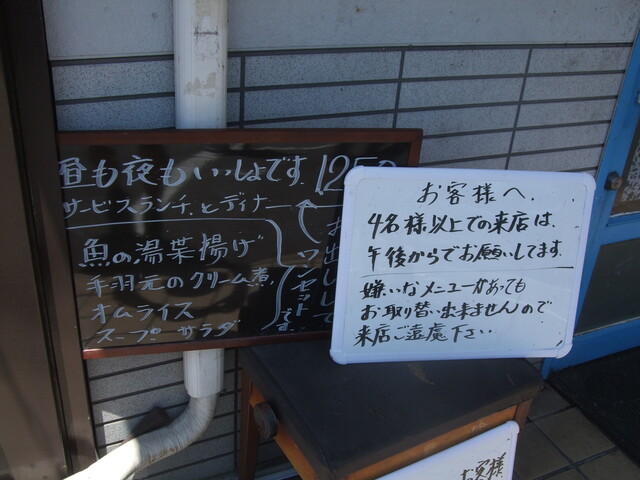 昼も夜もいっしょです. 125
サービスランチ.とディナー
魚の湯葉揚げ
手羽元のクリーム煮
オムライス
スープ サラダ
ワンセットです。
お出しして
お客様へ.
4名様以上での来店は、
午後からでお願いしてます.
嫌いなメニューがあっても
お取り替え出来ませんので
来店ご遠慮下さい.
お客様